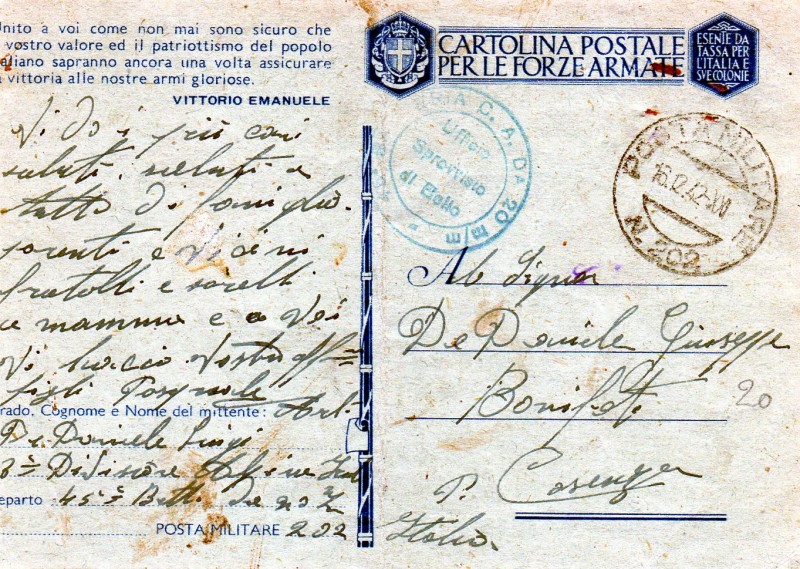 Unito a voi come non mai sono sicuro che
vostro valore ed il patriottismo del popolo
aliano sapranno ancora una volta assicurare
vittoria alle nostre armi gloriose.
VITTORIO EMANUELE
Vi do i più cari
saluti saluti a
tutto di famiglia
parenti e vicini
fratelli e sorelli
e mamma e a voi
Vi bacio vostro aff
figli
rado, Cognome e Nome del mittente: Art.
De Daniele Luigi
3ª Divisione Alpine
eparto 45ª Batt. da 20
POSTA MILITARE 202
CARTOLINA POSTALE
PER LE FORZE ARMATE
ESENTE DA
TASSA PER
L'ITALIA E
SVE COLONIE
C. A. DA 20 m/m
Ufficio
Sprovvisto
di Bollo
POSTA MILITARE
16.12.42-
N. 202
Al Signor
De Daniele Giuseppe
Bonifati
20
P. Cosenza
Italia